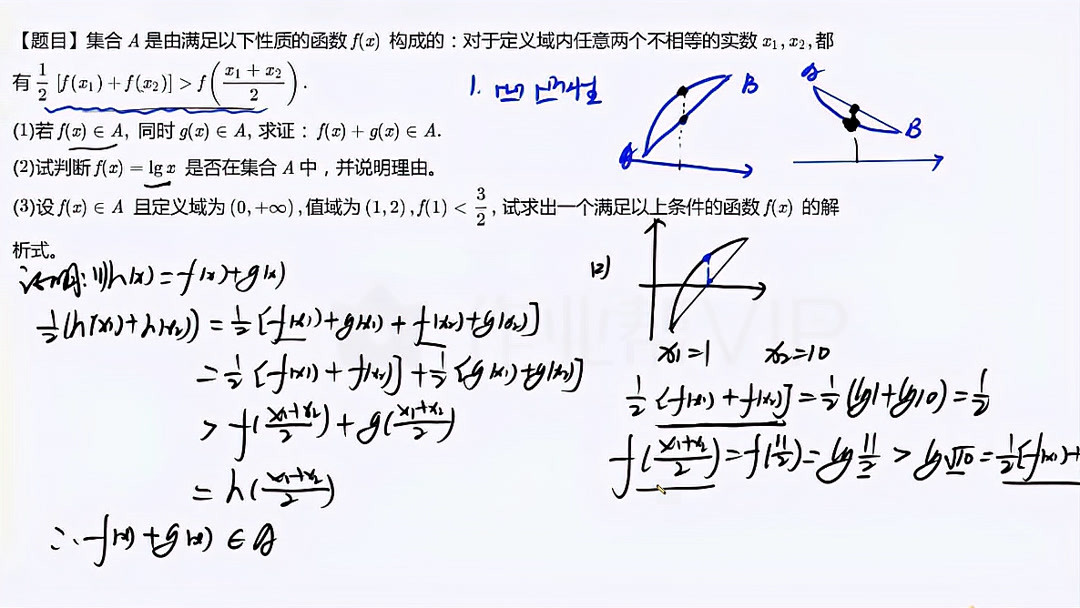 【题目】集合 A 是由满足以下性质的函数 f(x) 构成的：对于定义域内任意两个不相等的实数 x₁, x₂, 都
有 1/2 [f(x₁) + f(x₂)] > f((x₁ + x₂)/2).
(1)若 f(x) ∈ A, 同时 g(x) ∈ A, 求证：f(x) + g(x) ∈ A.
(2)试判断 f(x) = lg x 是否在集合 A 中，并说明理由。
(3)设 f(x) ∈ A 且定义域为 (0, +∞), 值域为 (1, 2), f(1) < 3/2, 试求出一个满足以上条件的函数 f(x) 的解
析式。
1. 凹凸性
A B
A B
证明: (1) h(x) = f(x) + g(x)
1/2 (h(x₁) + h(x₂)) = 1/2 [f(x₁) + g(x₁) + f(x₂) + g(x₂)]
= 1/2 [f(x₁) + f(x₂)] + 1/2 [g(x₁) + g(x₂)]
> f((x₁+x₂)/2) + g((x₁+x₂)/2)
= h((x₁+x₂)/2)
∴ f(x) + g(x) ∈ A
(2)
x₁=1 x₂=10
1/2 [f(x₁) + f(x₂)] = 1/2 (lg1 + lg10) = 1/2
f((x₁+x₂)/2) = f(11/2) = lg 11/2 > lg√10 = 1/2 [f(x₁) +